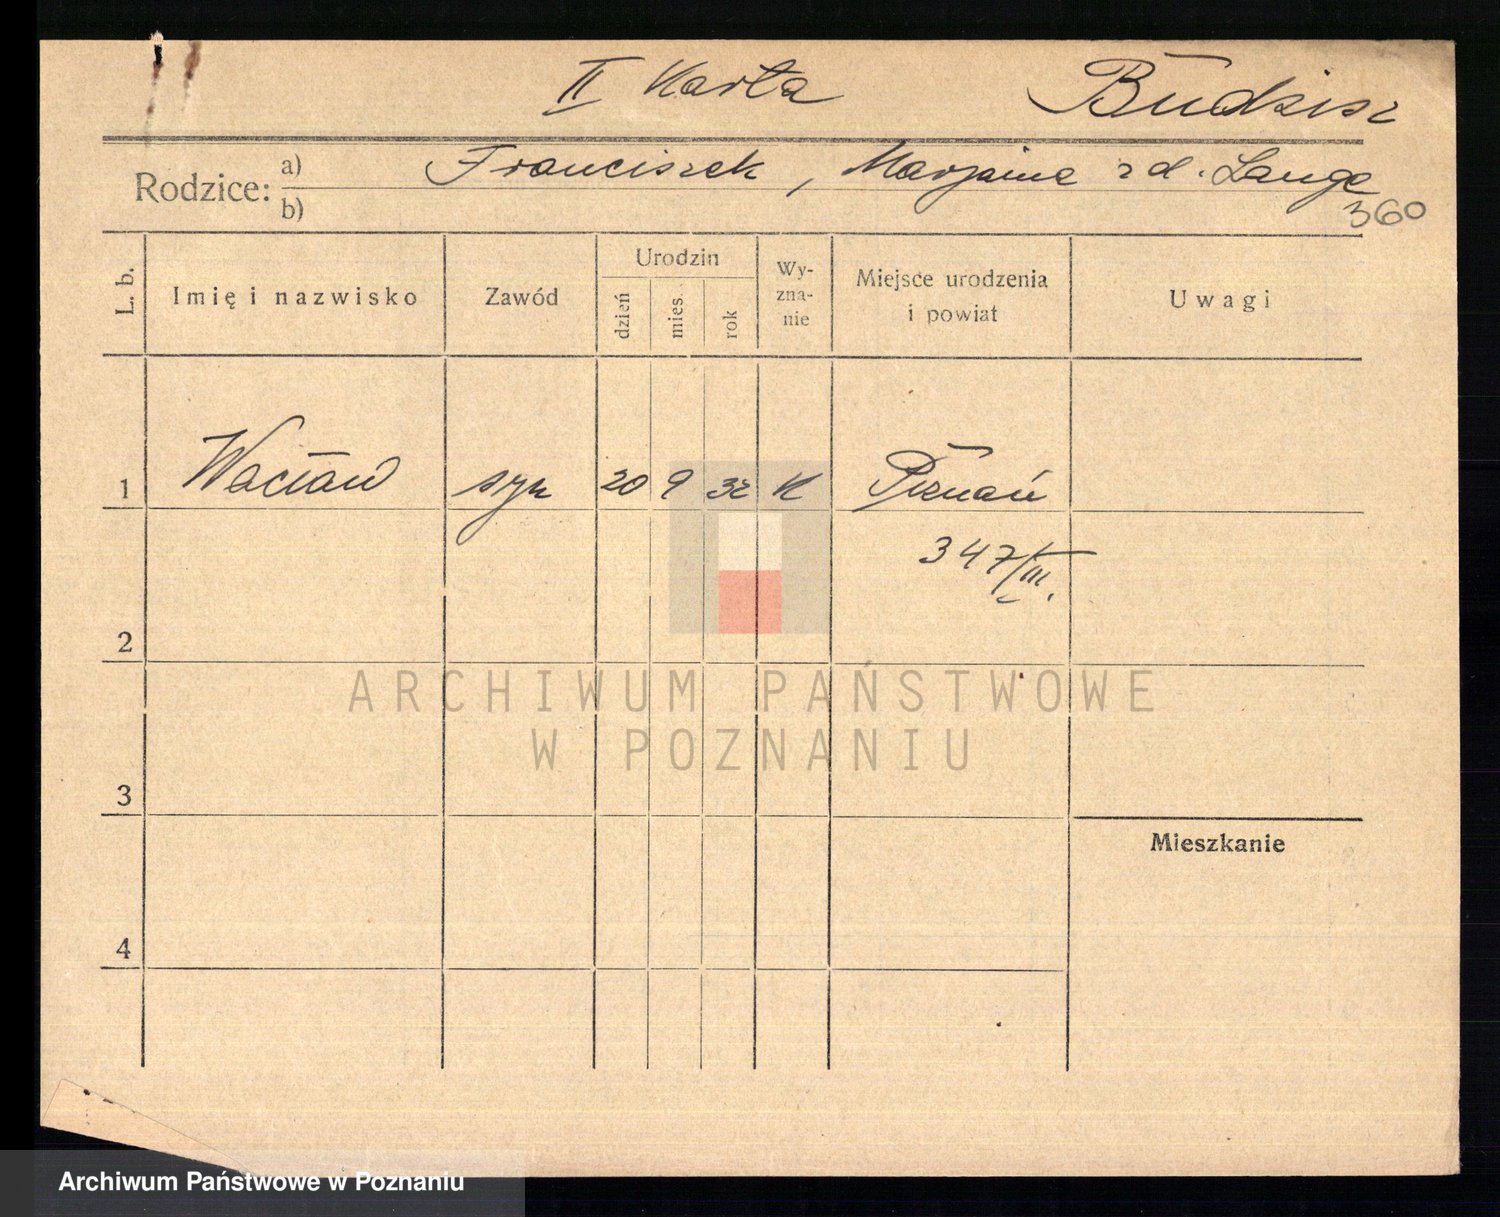 II Karta Budzisz
Rodzice: a) Franciszek, Marjanna zd. Lange
b)
360
L. b. Imię i nazwisko Zawód Urodzin dzień mies. rok Wy-zna-nie Miejsce urodzenia i powiat Uwagi
1 Wacław syn 20 9 32 K Poznań
347/III.
2
ARCHIWUM PAŃSTWOWE
W POZNANIU
3
Mieszkanie
4
Archiwum Państwowe w Poznaniu